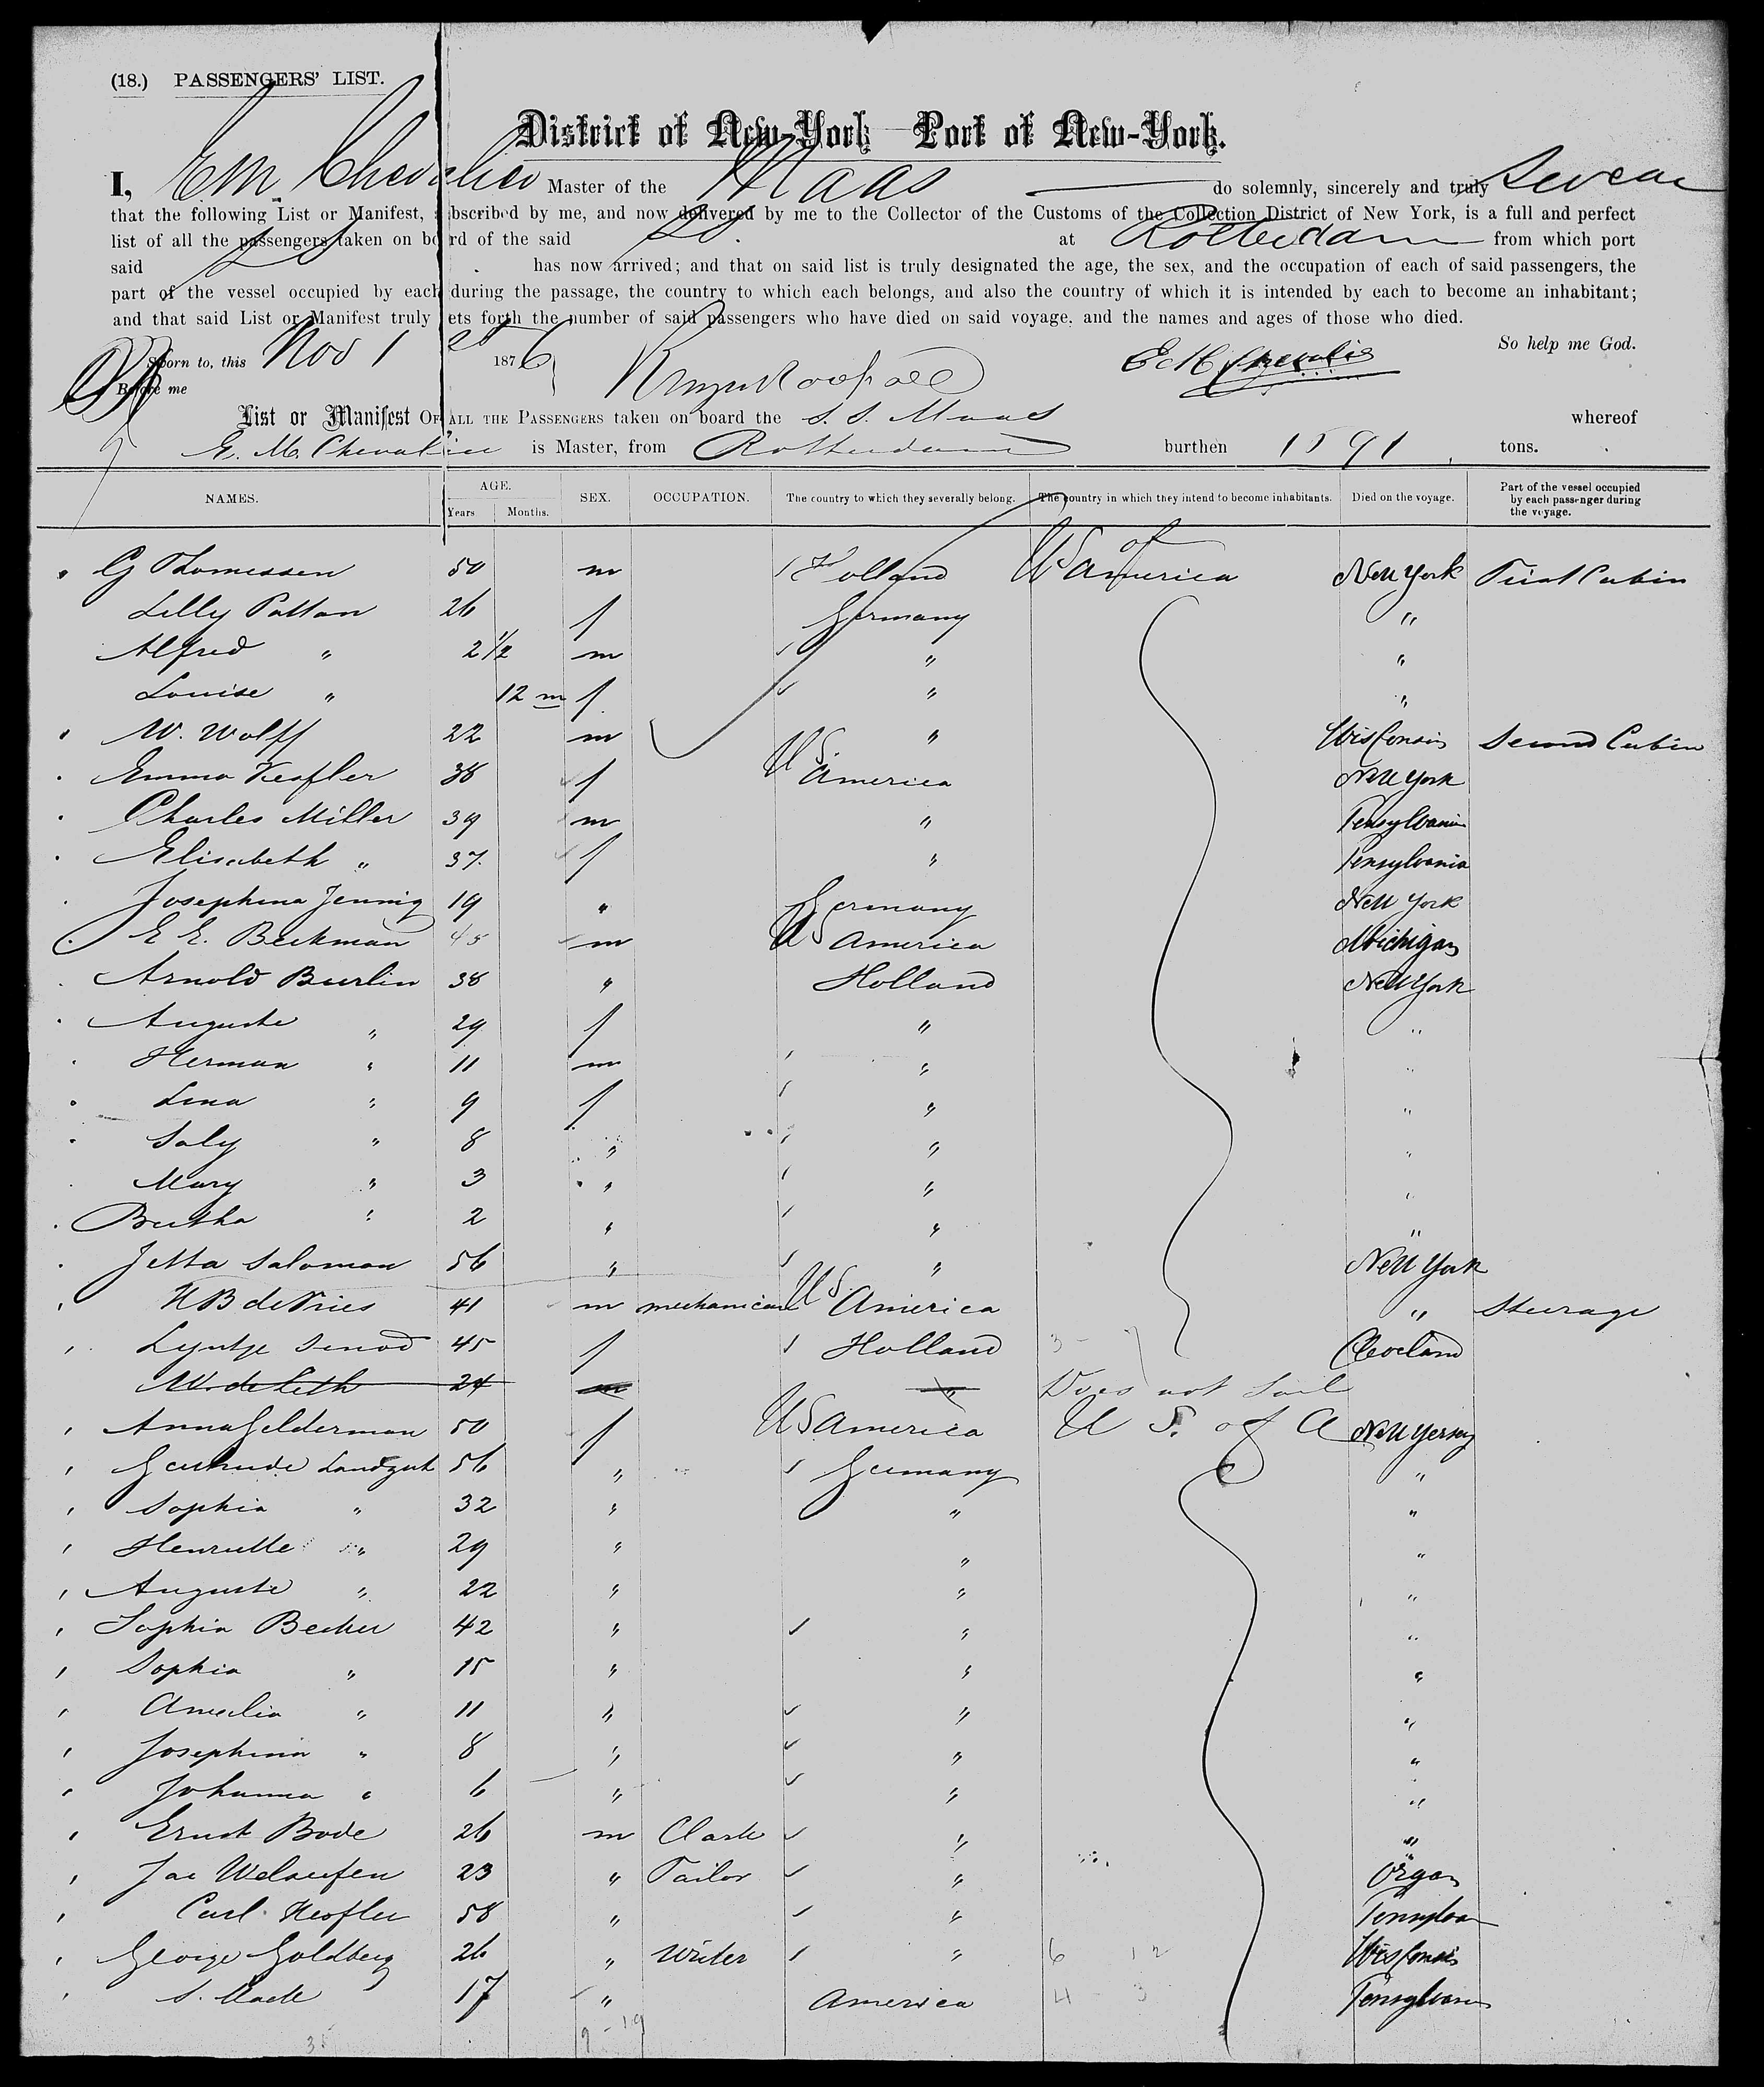 (18.) PASSENGERS' LIST.
District of New-York Port of New-York.
I, E M Chevalier Master of the Maas do solemnly, sincerely and truly Swear
that the following List or Manifest, subscribed by me, and now delivered by me to the Collector of the Customs of the Collection District of New York, is a full and perfect
list of all the passengers taken on board of the said SS. at Rotterdam from which port
said SS has now arrived; and that on said list is truly designated the age, the sex, and the occupation of each of said passengers, the
part of the vessel occupied by each during the passage, the country to which each belongs, and also the country of which it is intended by each to become an inhabitant;
and that said List or Manifest truly sets forth the number of said passengers who have died on said voyage, and the names and ages of those who died.
So help me God.
Sworn to, this Nov 1 1876
Before me
List or Manifest OF ALL THE PASSENGERS taken on board the S. S. Maas whereof
E. M. Chevalier is Master, from Rotterdam burthen 1591 tons.
NAMES. AGE. Years Months. SEX. OCCUPATION. The country to which they severally belong. The country in which they intend to become inhabitants. Died on the voyage. Part of the vessel occupied by each passenger during the voyage.
G Thomessen 50 m Holland US of America New York First Cabin
Lilly Patton 26 f Germany "
Alfred " 2 1/2 m " "
Louise " 12 m f " "
W. Wolff 22 m " Wisconsin Second Cabin
Emma 38 f US America New York
Charles Miller 39 m " Pensylvania
Elisabeth " 37 f " Pensylvania
Josephina Jennig 19 " Germany New York
E E. Beekman 45 m US America Michigan
Arnold Buerlin 38 " Holland New York
Auguste " 29 f " "
Herman " 11 m " "
Lina " 9 f " "
Saly " 8 " " "
Mary " 3 " " "
Bertha " 2 " " "
Jetta Salomon 56 " " New York
de Vries 41 m mechanican US America " Steerage
Lyntje 45 f Holland Cleveland
W. de Leth 24 m " Does not Sail
Anna Gelderman 50 f US America U S. of A New Yersey
Gertrude Landgut 56 " Germany "
Sophia " 32 " " "
Henriette " 29 " " "
Auguste " 22 " " "
Sophia Becker 42 " " "
Sophia " 15 " " "
Amelia " 11 " " "
Josephina " 8 " " "
Johanna " 6 " " "
Ernst Bode 26 m Clark " "
Jac 23 " Tailor " Orgon
Carl 58 " "
George Goldberg 26 " Writer " Wisconsin
S. 17 " America Pensylvania